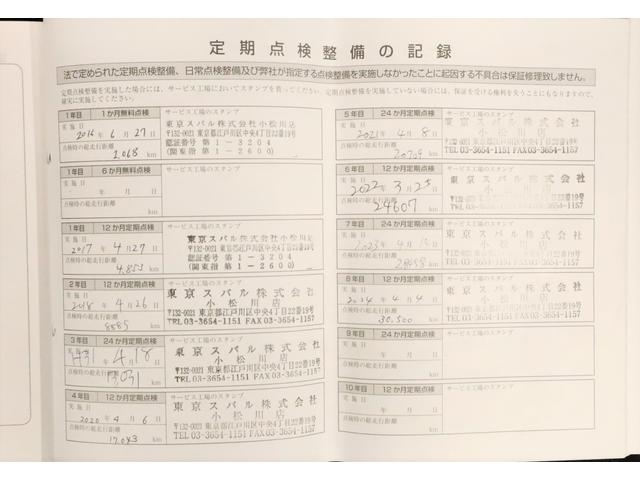 定期点検整備の記録
法で定められた定期点検整備、日常点検整備及び弊社が指定する点検整備を実施しなかったことに起因する不具合は保証修理致しません。
定期点検整備を実施した場合には、サービス工場においてスタンプを貰ってください。定期点検整備が実施していない場合には、保証を受ける権利を失うこともありますので、
確実に実施してください。
1年目 1か月無料点検 サービス工場のスタンプ
実施日 2016年6月27日
点検時の総走行距離 2,068 km
東京スバル株式会社小松川店
〒132-0021 東京都江戸川区中央4丁目22番19号
認証番号 第1-3204
(関東指第1-2600)
1年目 6か月無料点検 サービス工場のスタンプ
実施日 年 月 日
点検時の総走行距離 km
1年目 12か月定期点検 サービス工場のスタンプ
実施日 2017年4月27日
点検時の総走行距離 4,855 km
東京スバル株式会社小松川店
〒132-0021 東京都江戸川区中央4丁目22番19号
認証番号 第1-3204
(関東指第1-2600)
2年目 12か月定期点検 サービス工場のスタンプ
実施日 2018年4月26日
点検時の総走行距離 8885 km
東京スバル株式会社
小松川店
〒132-0021 東京都江戸川区中央4丁目22番19号
TEL 03-3654-1151 FAX 03-3654-1157
3年目 24か月定期点検 サービス工場のスタンプ
実施日 H31 4月18日
点検時の総走行距離 13031 km
東京スバル株式会社
小松川店
〒132-0021 東京都江戸川区中央4丁目22番19号
TEL 03-3654-1151 FAX 03-3654-1157
4年目 12か月定期点検 サービス工場のスタンプ
実施日 2020年4月6日
点検時の総走行距離 17,043 km
東京スバル株式会社
小松川店
〒132-0021 東京都江戸川区中央4丁目22番19号
TEL 03-3654-1151 FAX 03-3654-1157
5年目 24か月定期点検 サービス工場のスタンプ
実施日 2021年4月8日
点検時の総走行距離 20709 km
東京スバル株式会社
小松川店
〒132-0021 東京都江戸川区中央4丁目22番19号
TEL 03-3654-1151 FAX 03-3654-1157
6年目 12か月定期点検 サービス工場のスタンプ
実施日 2022年3月25日
点検時の総走行距離 24607 km
東京スバル株式会社
小松川店
〒132-0021 東京都江戸川区中央4丁目22番19号
TEL 03-3654-1151 FAX 03-3654-1157
7年目 24か月定期点検 サービス工場のスタンプ
実施日 2023年4月 日
点検時の総走行距離 km
東京スバル株式会社
小松川店
〒132-0021 東京都江戸川区中央4丁目22番19号
TEL 03-3654-1151 FAX 03-3654-1157
8年目 12か月定期点検 サービス工場のスタンプ
実施日 2024年4月4日
点検時の総走行距離 30,500 km
東京スバル株式会社
小松川店
〒132-0021 東京都江戸川区中央4丁目22番19号
TEL 03-3654-1151 FAX 03-3654-1157
9年目 24か月定期点検 サービス工場のスタンプ
実施日 年 月 日
点検時の総走行距離 km
10年目 12か月定期点検 サービス工場のスタンプ
実施日 年 月 日
点検時の総走行距離 km